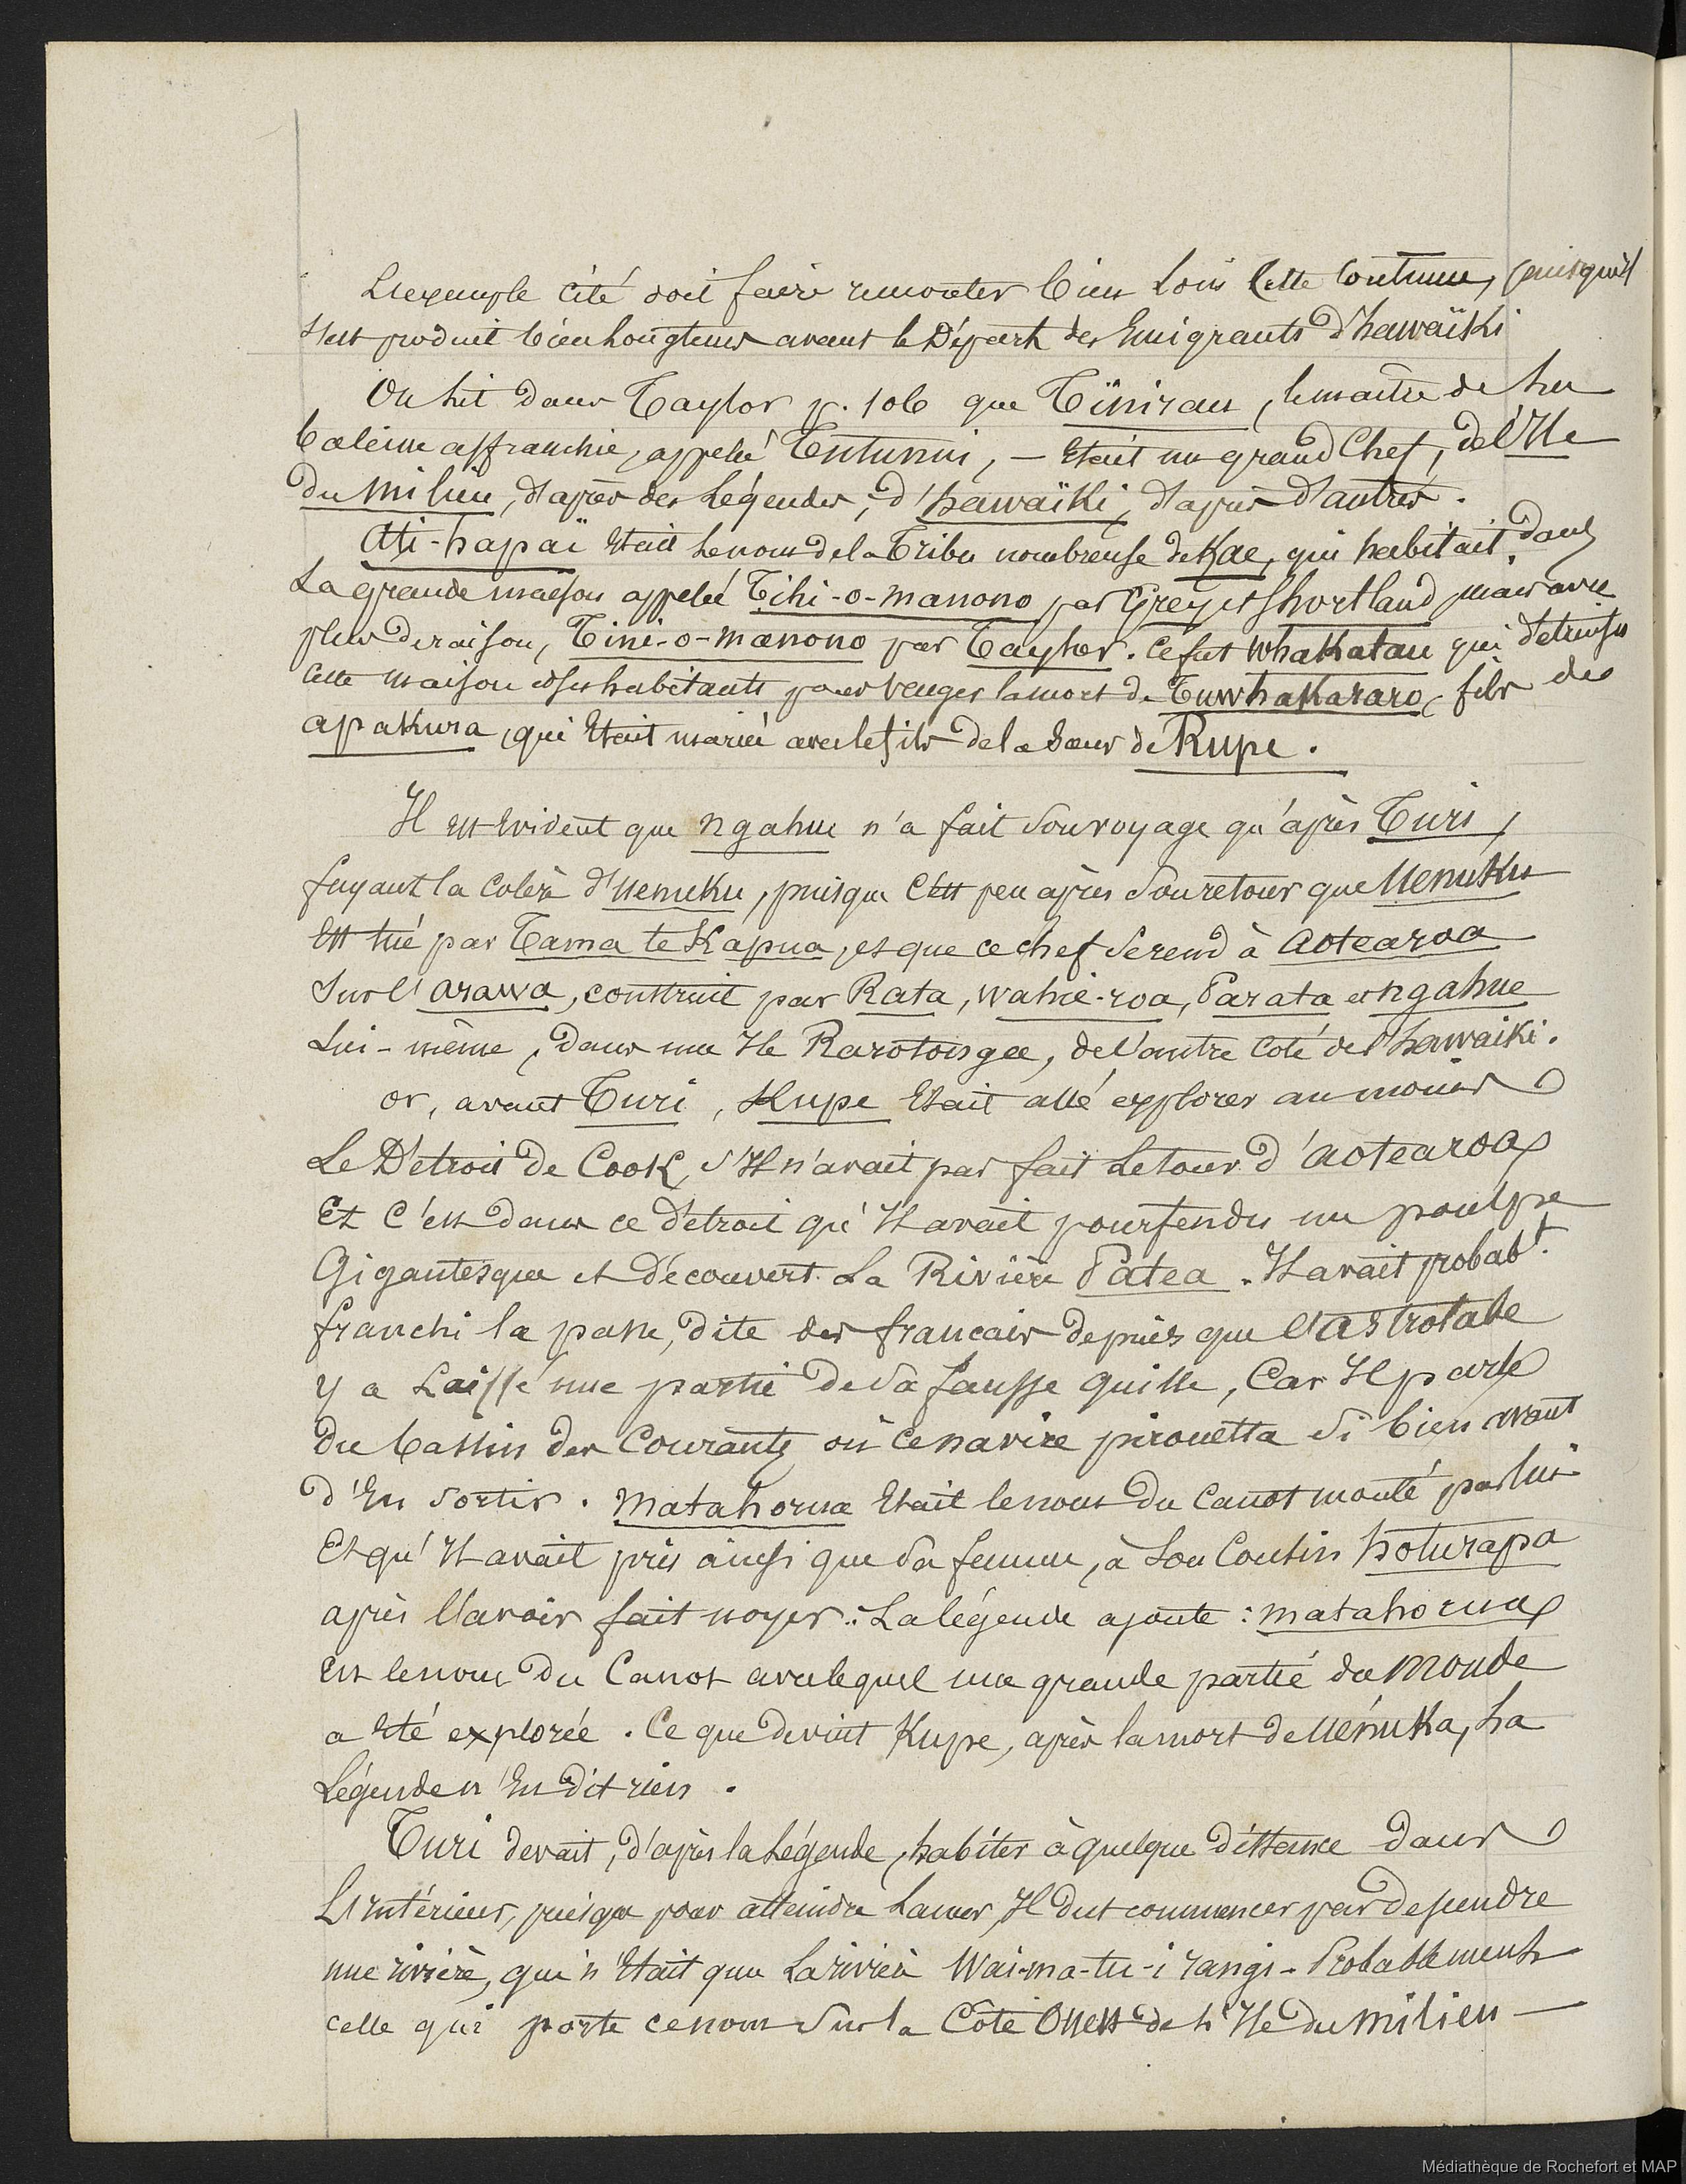 L'exemple cité doit faire remonter bien loin cette coutume, puisqu'il
s'est produit bien longtems avant le Départ des Emigrants d'hawaïki
On lit dans Taylor p. 106 que Tiniran, le maître de la
baleine affranchie, appelé Tutunui, — Etait un grand Chef, de l'Ile
du milieu, d'après des Légendes, d'hawaïki, d'après d'autres.
Ati-hapaï Etait le nom de la Tribu nombreuse de Kae, qui habitait dans
La grande maison appelé Tihi-o-manono par Grey et Shortland mais avec
plus de raison, Tini-o-manono par Taylor. Ce fut Whakatau qui détruisit
cette maison et ses habitants pour venger la mort de Tuwhakararo, fils de
apakura, qui Etait mariée avec le fils de la Sœur de Rupe.
Il est Evident que ngahue n'a fait son voyage qu'après Turi,
fuyant la colère d'Uenuku, puisque c'est peu après son retour que Uenuku
Est tué par Tama te Kapua, et que ce chef se rend à Aotearoa
Sur l'arawa, construit par Rata, Wahie-roa, Parata et ngahue
Lui-même, dans une Ile Rarotonga, de l'autre coté de hawaiki.
or, avant Turi, Kupe Etait allé explorer au moins
Le Détroit de Cook, s'Il n'avait pas fait Le tour d'aotearoa
Et c'est dans ce détroit qu'Il avait pourfendu un poulpe
Gigantesque et découvert La Rivière Patea. Il avait probabt.
franchi la passe, dite des français depuis que l'astrolabe
y a Laissé une partie de sa fausse quille, Car Il parle
du bassin des Courants où ce navire pirouetta si bien avant
d'En sortir. Matahorua Etait le nom du Canot monté par lui
Et qu'Il avait pris ainsi que sa femme, à son Cousin hoturapa
après l'avoir fait noyer. La légende ajoute : matahorua
Est le nom du Canot avec lequel une grande partie du monde
a Eté explorée. Ce que devint Kupe, après la mort de Uenuka, La
Légende n'En dit rien.
Turi devait, d'après la Légende, habiter à quelque distance dans
L'Intérieur, puisque pour atteindre La mer, Il dut commencer par descendre
une rivière, qui n'Etait que La rivière Wai-ma-tu-i rangi - Probablement
celle qui porte ce nom Sur la Côte Ouest de L'Ile du milieu —
Médiathèque de Rochefort et MAP